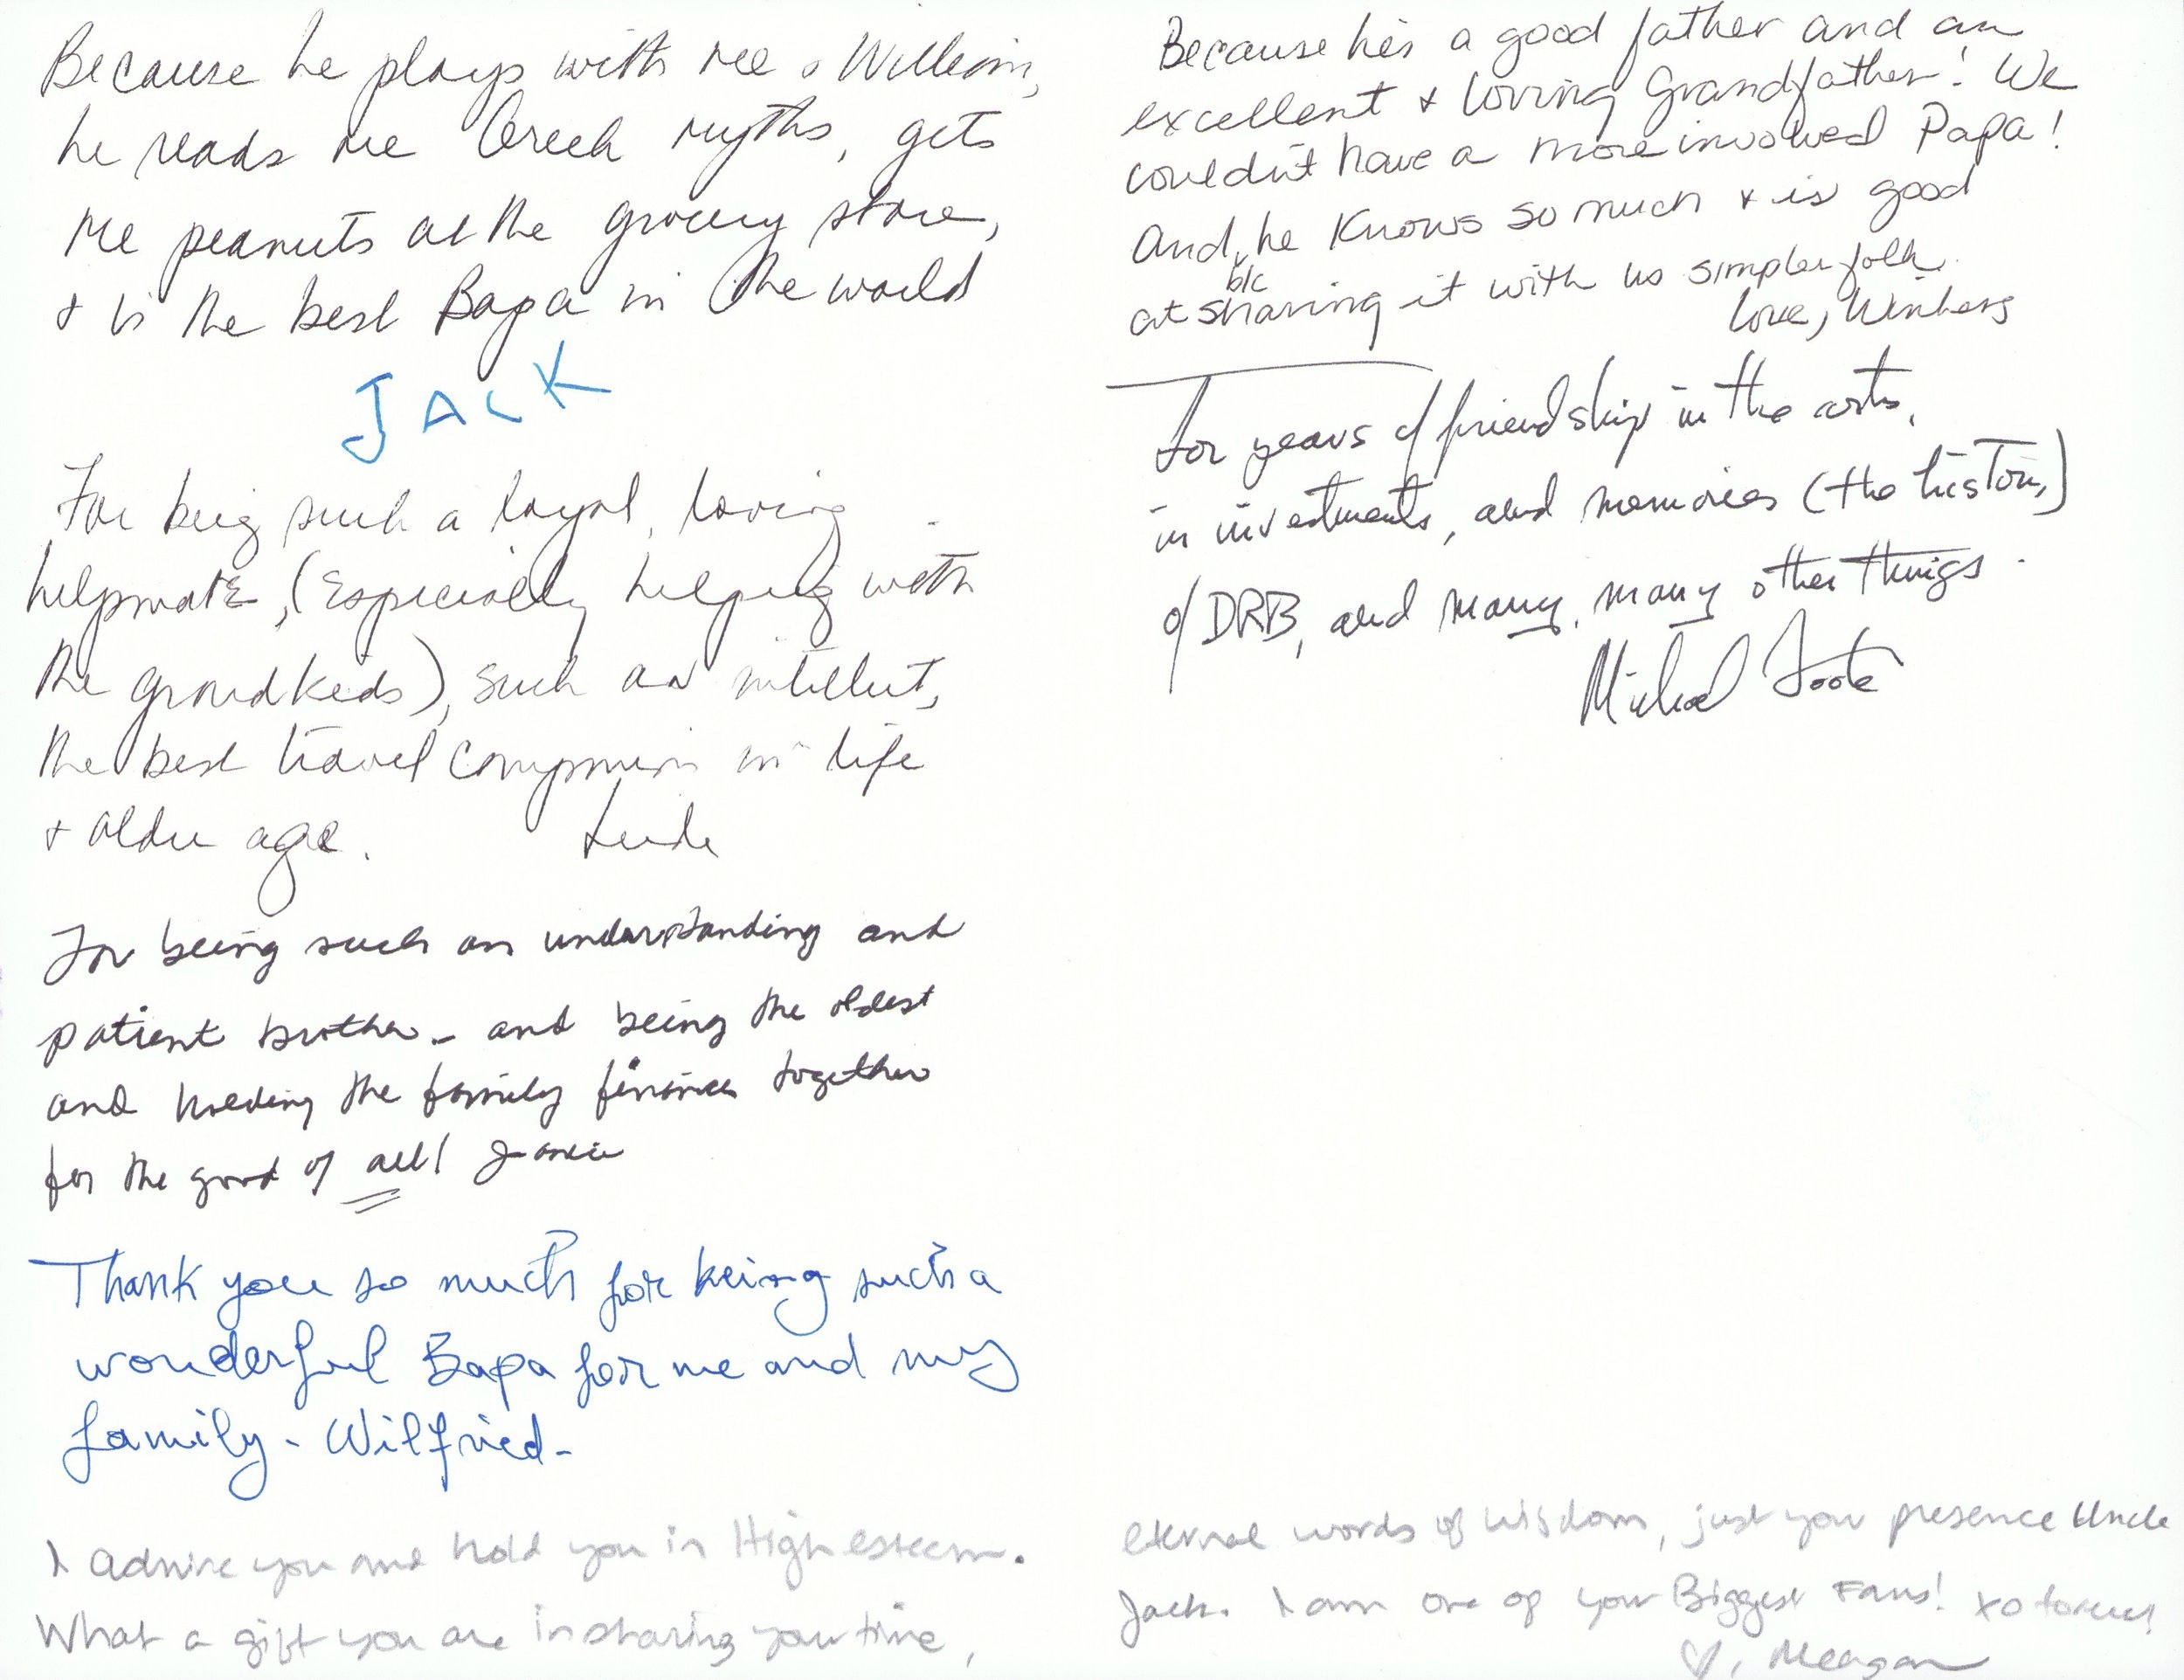 Because he plays with me & William,
he reads me Greek myths, gets
me peanuts at the grocery store,
+ is the best Bapa in the world
JACK
For being such a loyal, loving
helpmate, (especially helping with
the grandkids), such an intellect,
the best travel companion in life
+ older age.
For being such an understanding and
patient brother - and being the oldest
and holding the family finances together
for the good of all!
Thank you so much for being such a
wonderful Bapa for me and my
family - Wilfried -
I admire you and hold you in High esteem.
What a gift you are in sharing your time,
Because he's a good father and an
excellent + loving Grandfather! We
couldn't have a more involved Papa!
And, he knows so much + is good
b/c
at sharing it with us simpler folk.
Love,
For years of friendship in the arts,
in investments, and memories (the history)
of DRB, and many, many other things.
Michael Foote
eternal words of wisdom, just your presence Uncle
Jack. I am one of your Biggest Fans! xo forever
♡, Meagan